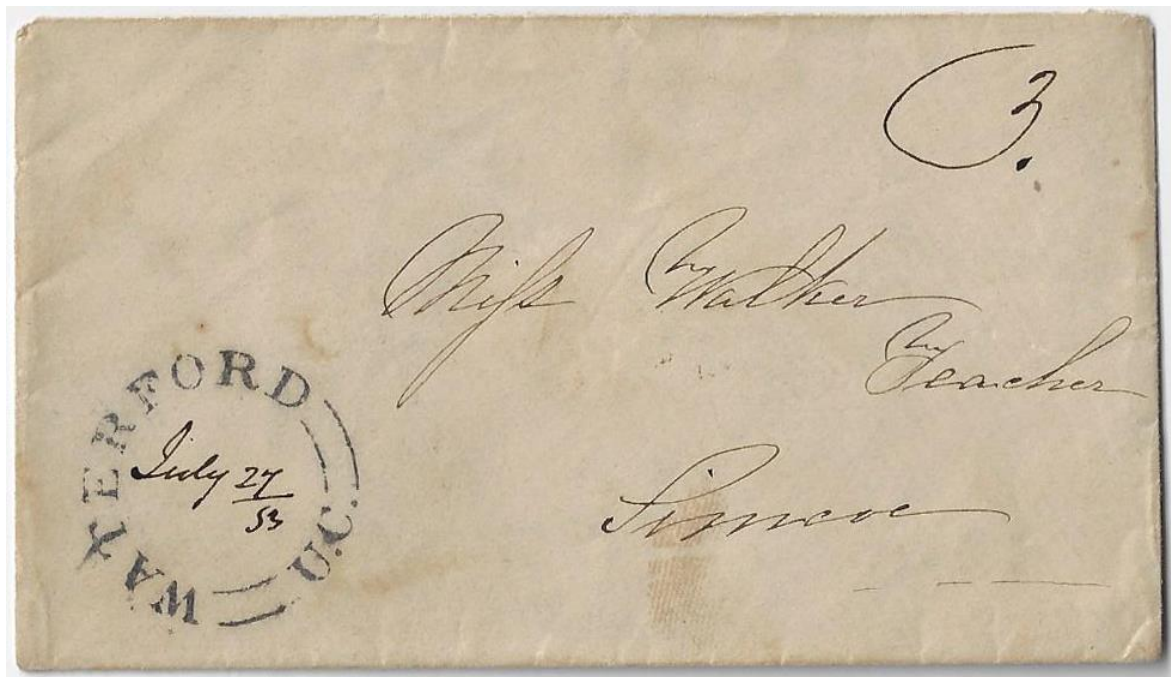 3.
Miss Walker
Teacher
Simcoe
WATERFORD U.C.
July 27
53